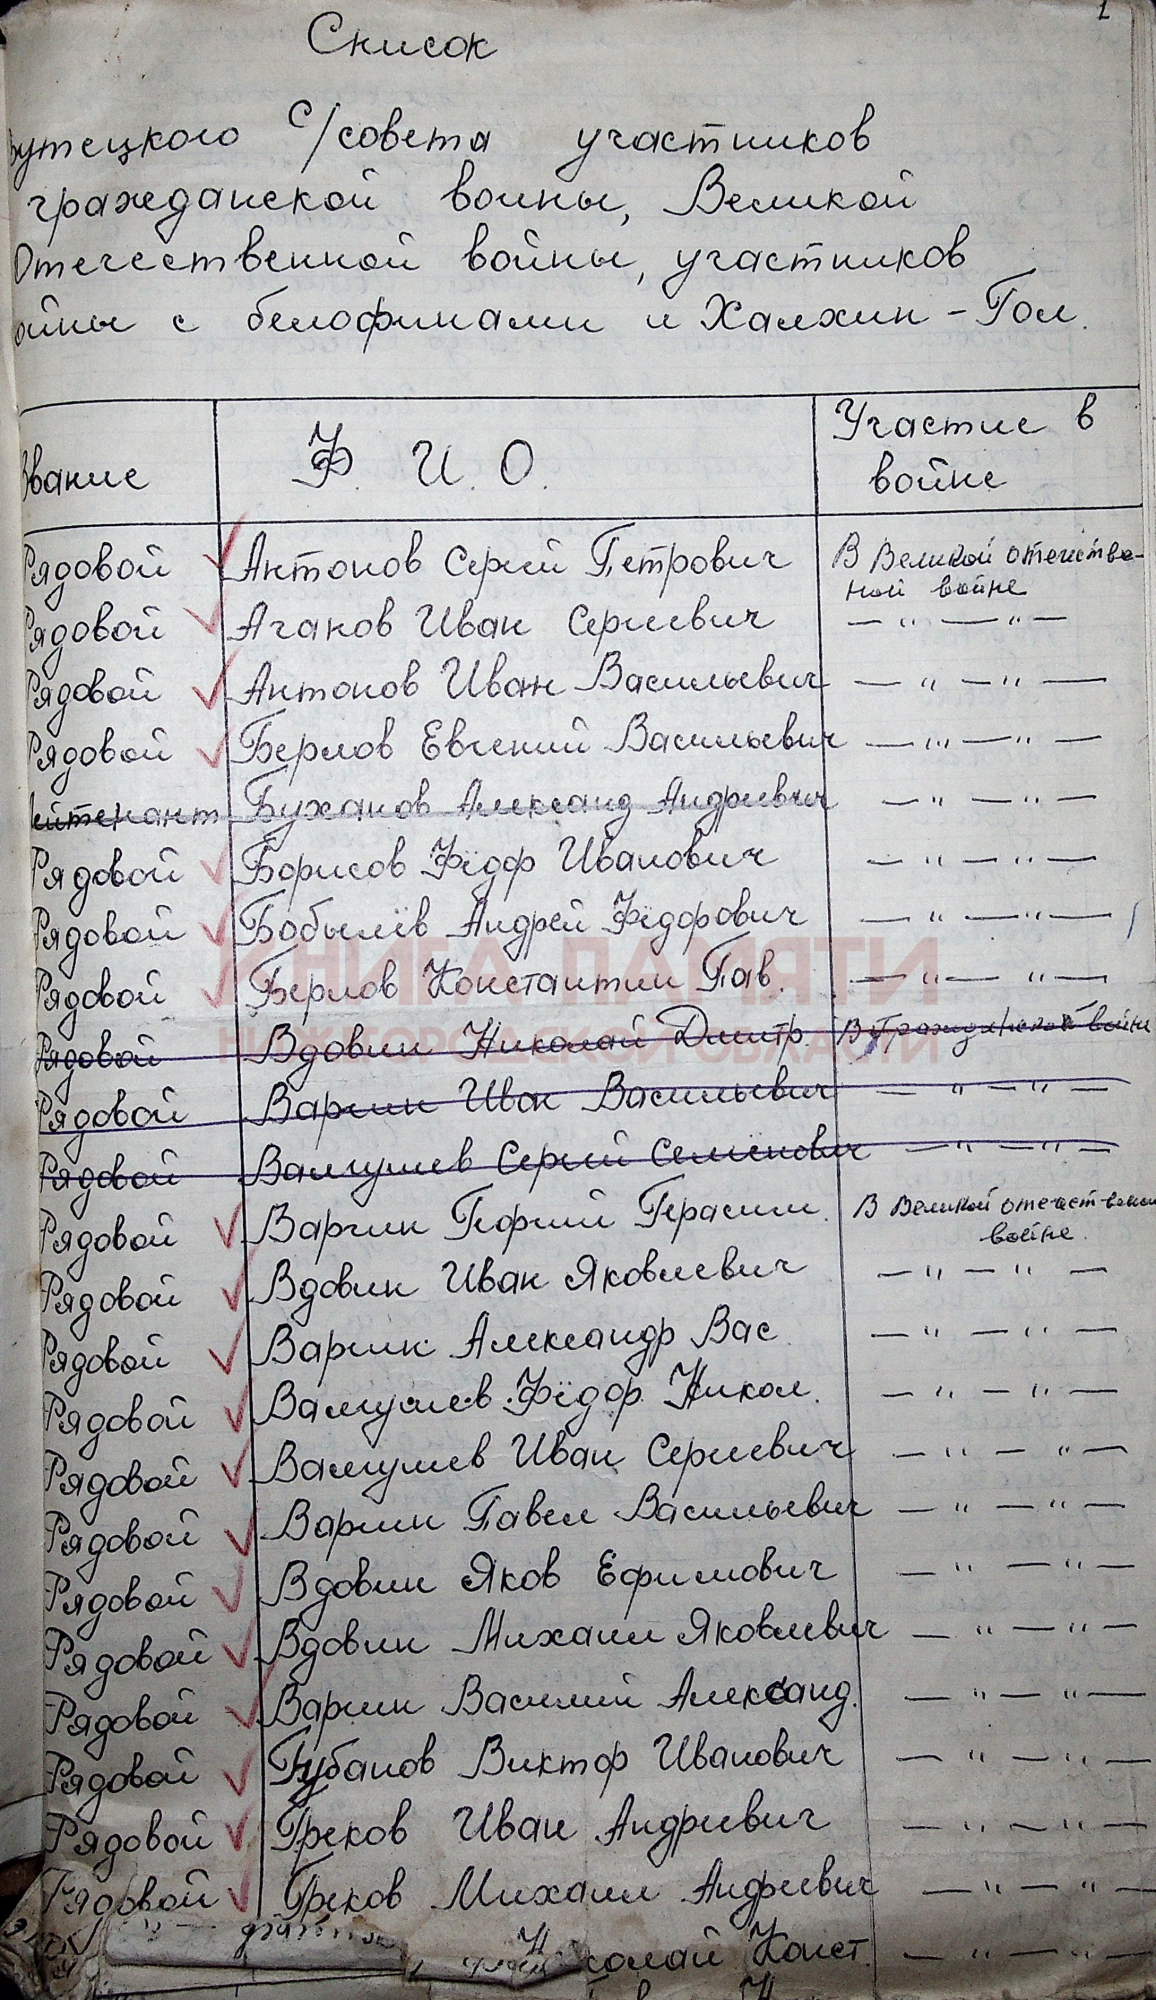 1
Список
утецкого с/совета участников
гражданской войны, Великой
Отечественной войны, участников
ойны с белофинами и Халхин-Гол.
Звание Ф. И. О. Участие в
войне
Рядовой Антонов Сергей Петрович В Великой отечестве-
ной войне
Рядовой Агапов Иван Сергеевич — " — " —
Рядовой Антонов Иван Васильевич — " — " —
Рядовой Берлов Евгений Васильевич — " — " —
ейтенант Буханов Александ Андреевич — " — " —
Рядовой Борисов Фёдор Иванович — " — " —
Рядовой Бобылёв Андрей Фёдорович — " — " —
Рядовой Берлов Константин Пав. — " — " —
КНИГА ПАМЯТИ
НИЖЕГОРОДСКОЙ ОБЛАСТИ
Рядовой Вдовин Николай Дмитр. В Гражданской войне
Рядовой Варгин Иван Васильевич — " — " —
Рядовой Валгушев Сергей Семёнович — " — " —
Рядовой Варгин Георгий Герасим. В Великой отечественной
войне.
Рядовой Вдовин Иван Яковлевич — " — " —
Рядовой Варгин Александр Вас — " — " —
Рядовой Валгушев Фёдор Никол. — " — " —
Рядовой Валгушев Иван Сергеевич — " — " —
Рядовой Варгин Павел Васильевич — " — " —
Рядовой Вдовин Яков Ефимович — " — " —
Рядовой Вдовин Михаил Яковлевич — " — " —
Рядовой Варгин Василий Александ. — " — " —
Рядовой Губанов Виктор Иванович — " — " —
Рядовой Греков Иван Андреевич — " — " —
Рядовой Греков Михаил Андреевич — " — " —
колай Конст. — " — " —